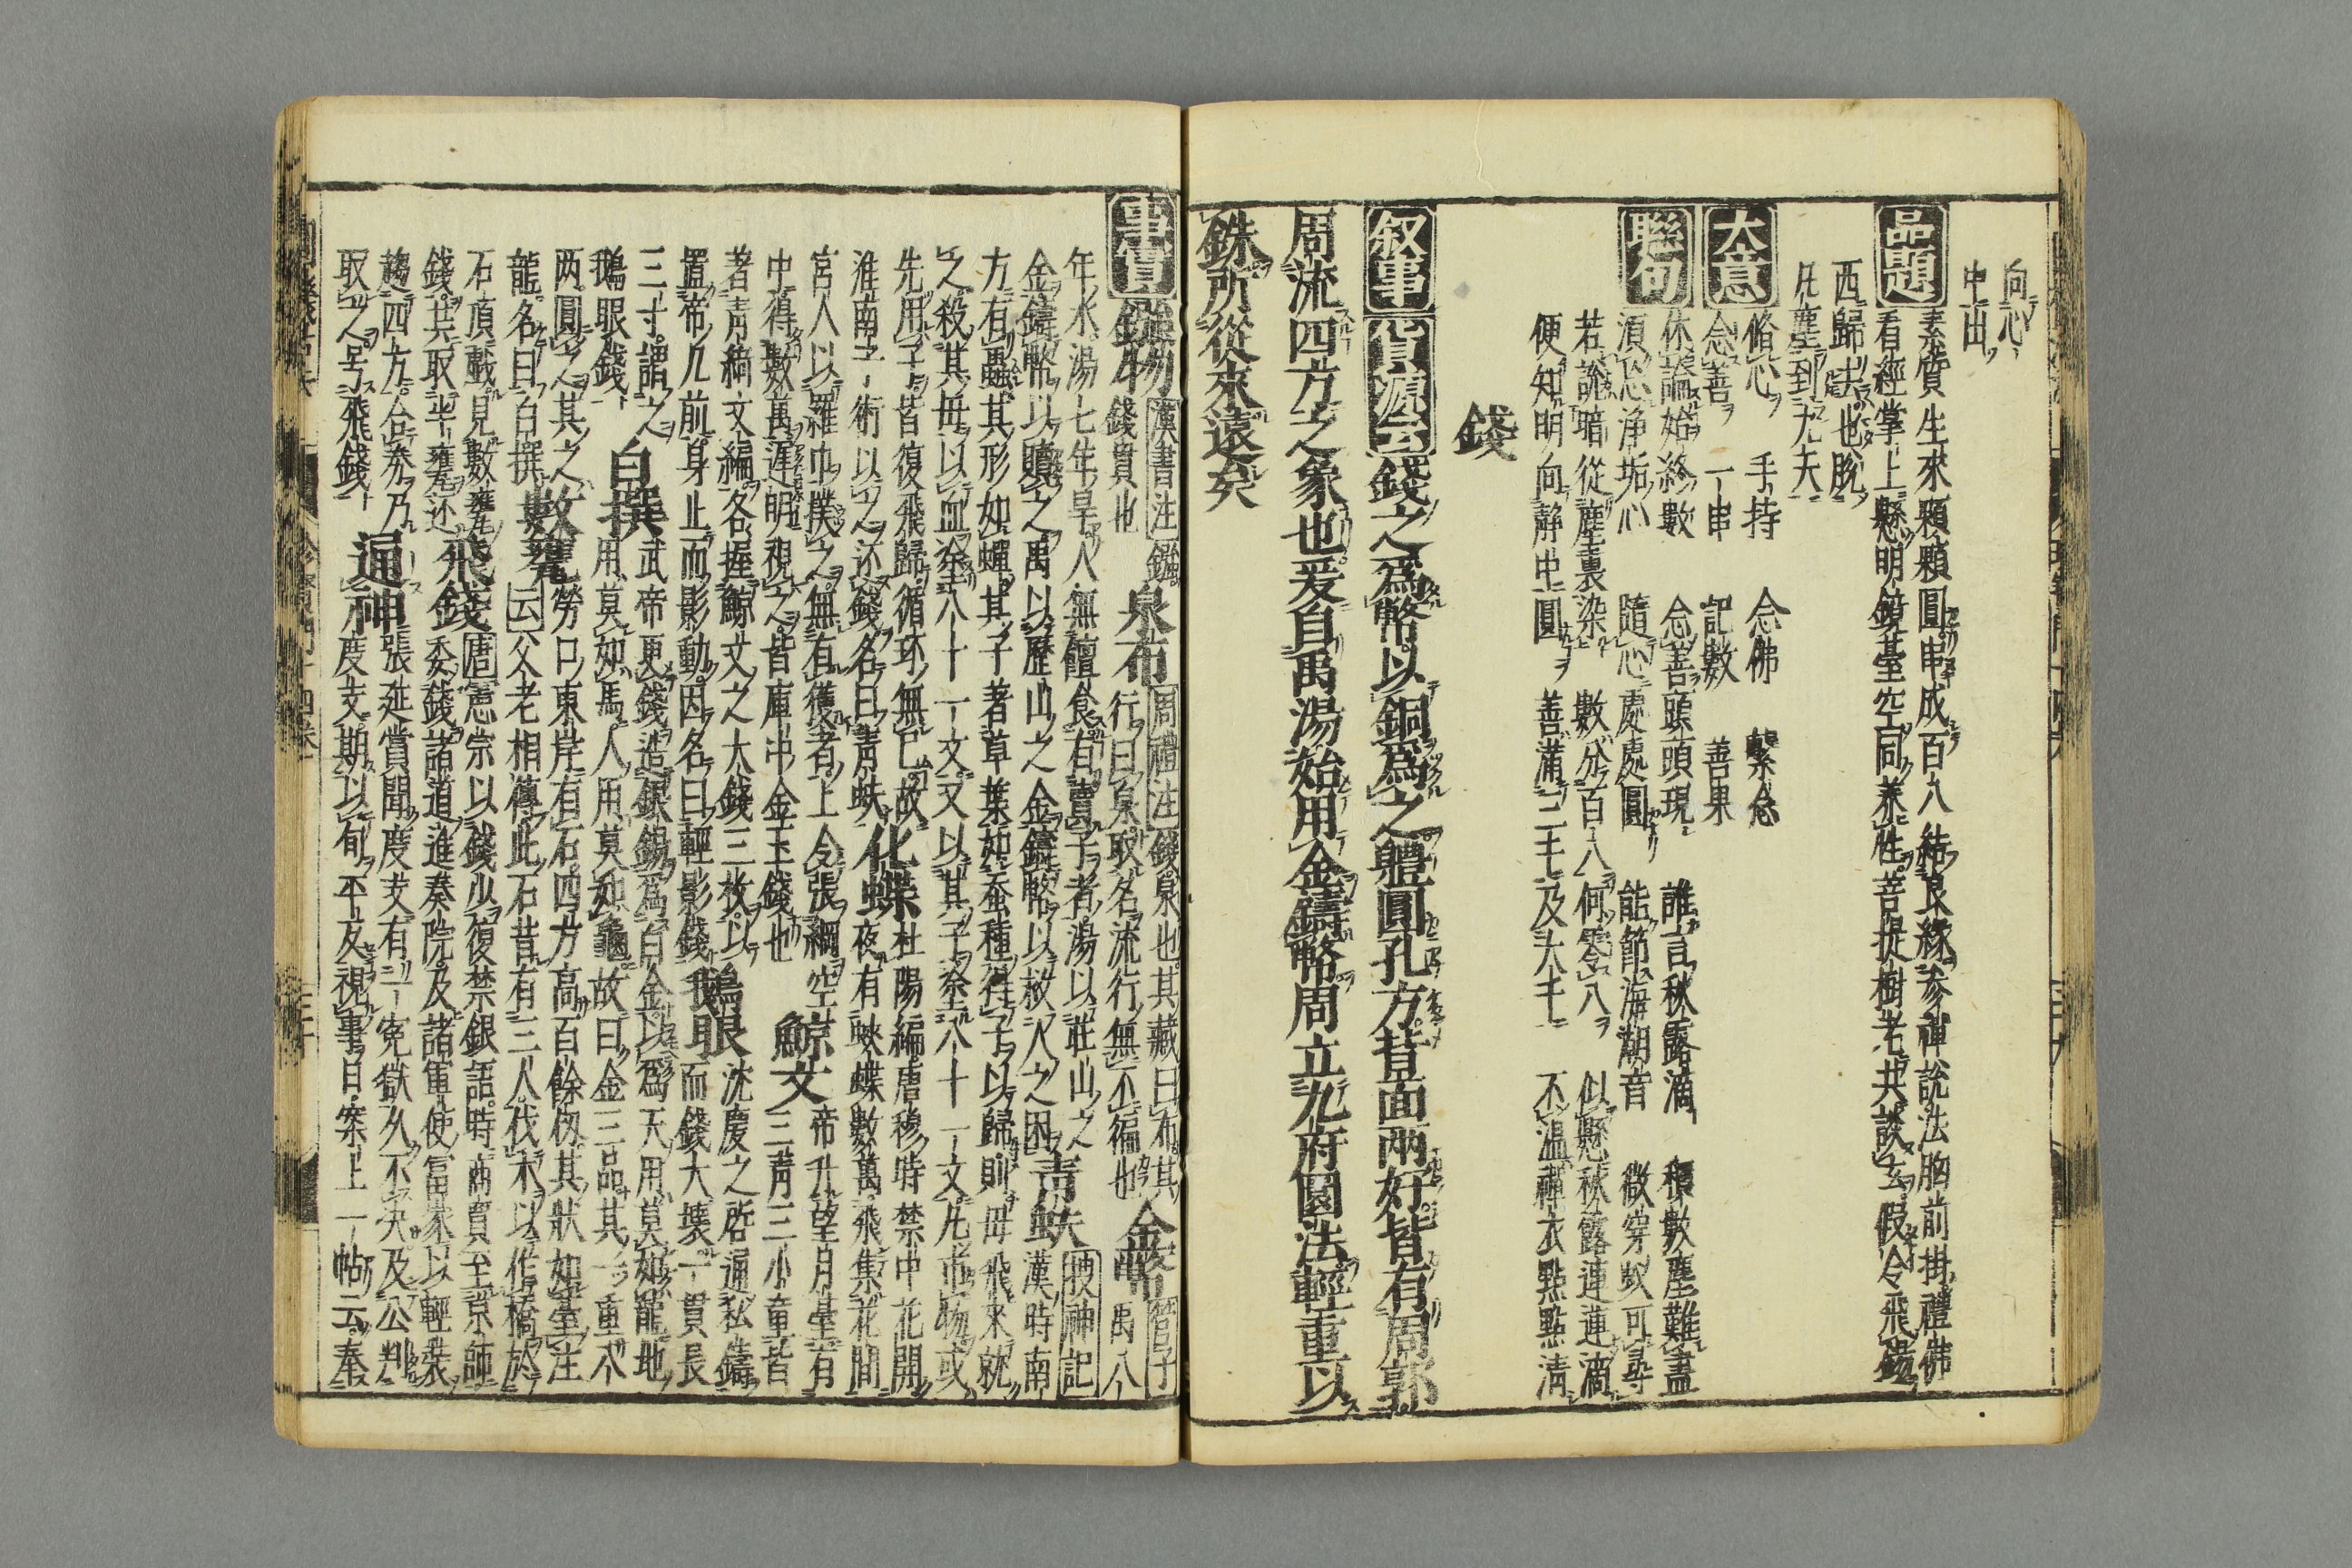 向心
中出
品題
素質生來顆顆圓串成百八結良緣參禪說法胸前掛禮佛
看經掌上懸明鏡臺空同業性菩提樹老共談玄假令飛錫
西歸去也脫
凡塵到九天
大意
脩心 手持 念佛 繫念
念善 一串 記數 善果
聯句
休論始終數 念善頭頭現 誰言秋露滴 積數塵難盡
須忘淨垢心 隨心處處圓 能節海潮音 微穿蟻可尋
若說暗從塵裏染 數分百八何零八 似懸秋露連連滴
便知明向靜中圓 善滿三千及大千 不溫禪衣點點清
錢
叙事
貨源云
錢之爲幣以銅爲之體圓孔方昔面兩好皆有周郭
周流四方之象也爰自禹湯始用金鑄幣周立九府圜法輕重以
銖所從來遠矣
事實
鏹
漢書注鏹
錢貫也
泉布
周禮注錢泉也其藏曰布其
行曰泉取名流行無不徧也
金幣
管子
禹八
年水湯七年旱人無饘食有賣子者湯以莊山之
金鑄幣以贖之禹以歷山之金鑄幣以救人之困
青蚨
搜神記
漢時南
方有蟲其形如蟬其子著草葉如蚕種得子以歸則毋飛來就
之殺其毋以血塗八十一文又以其子塗八十一文凡市物或
先用子皆復飛歸循环無已故
淮南子術以之还錢名曰青蚨
化蝶
杜陽編唐穆時禁中花開
夜有蛺蝶數萬飛集花間
宮人以羅巾撲之無有獲者上令張網空
中得數萬遲明視之皆庫中金玉錢也
鯨文
帝升望月臺有
三靑三小童皆
著靑綺文編各握鯨文之大錢三枚以
置帝几前身止而影動因名曰輕影錢
鵝眼
沈慶之啓通私鑄
而錢大壞一貫長
三寸謂之
鵝眼錢
白撰
武帝更錢造銀錫爲白金以爲天用莫如龍地
用莫如馬人用莫如龜故曰金三品其一重八
兩圓之其文
龍名曰白撰
數甕
勞口東岸有石四方高百餘仭其狀如臺注
云父老相傳此石昔有三人伐木以作橋於
石頂戱見數甕
錢共取半甕还
飛錢
唐憲宗以錢少復禁銀語時商賈至京師
委錢諸道進奏院及諸軍使富家以輕裝
趨四方合券乃
取之号飛錢
通神
張延賞聞度支有一寃獄久不決及公判
度支期以旬平反視事日案上一帖云奉